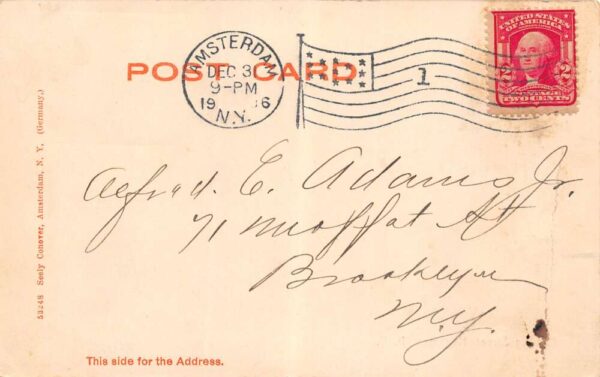 POST CARD
AMSTERDAM
DEC 3
9-PM
19 6
N.Y.
1
UNITED STATES OF AMERICA
2 2
TWO CENTS
Alfred. E. Adams Jr.
71 Moffat St
Brooklyn
N.Y.
This side for the Address.
53248 Seely Conover, Amsterdam, N. Y. (Germany.)